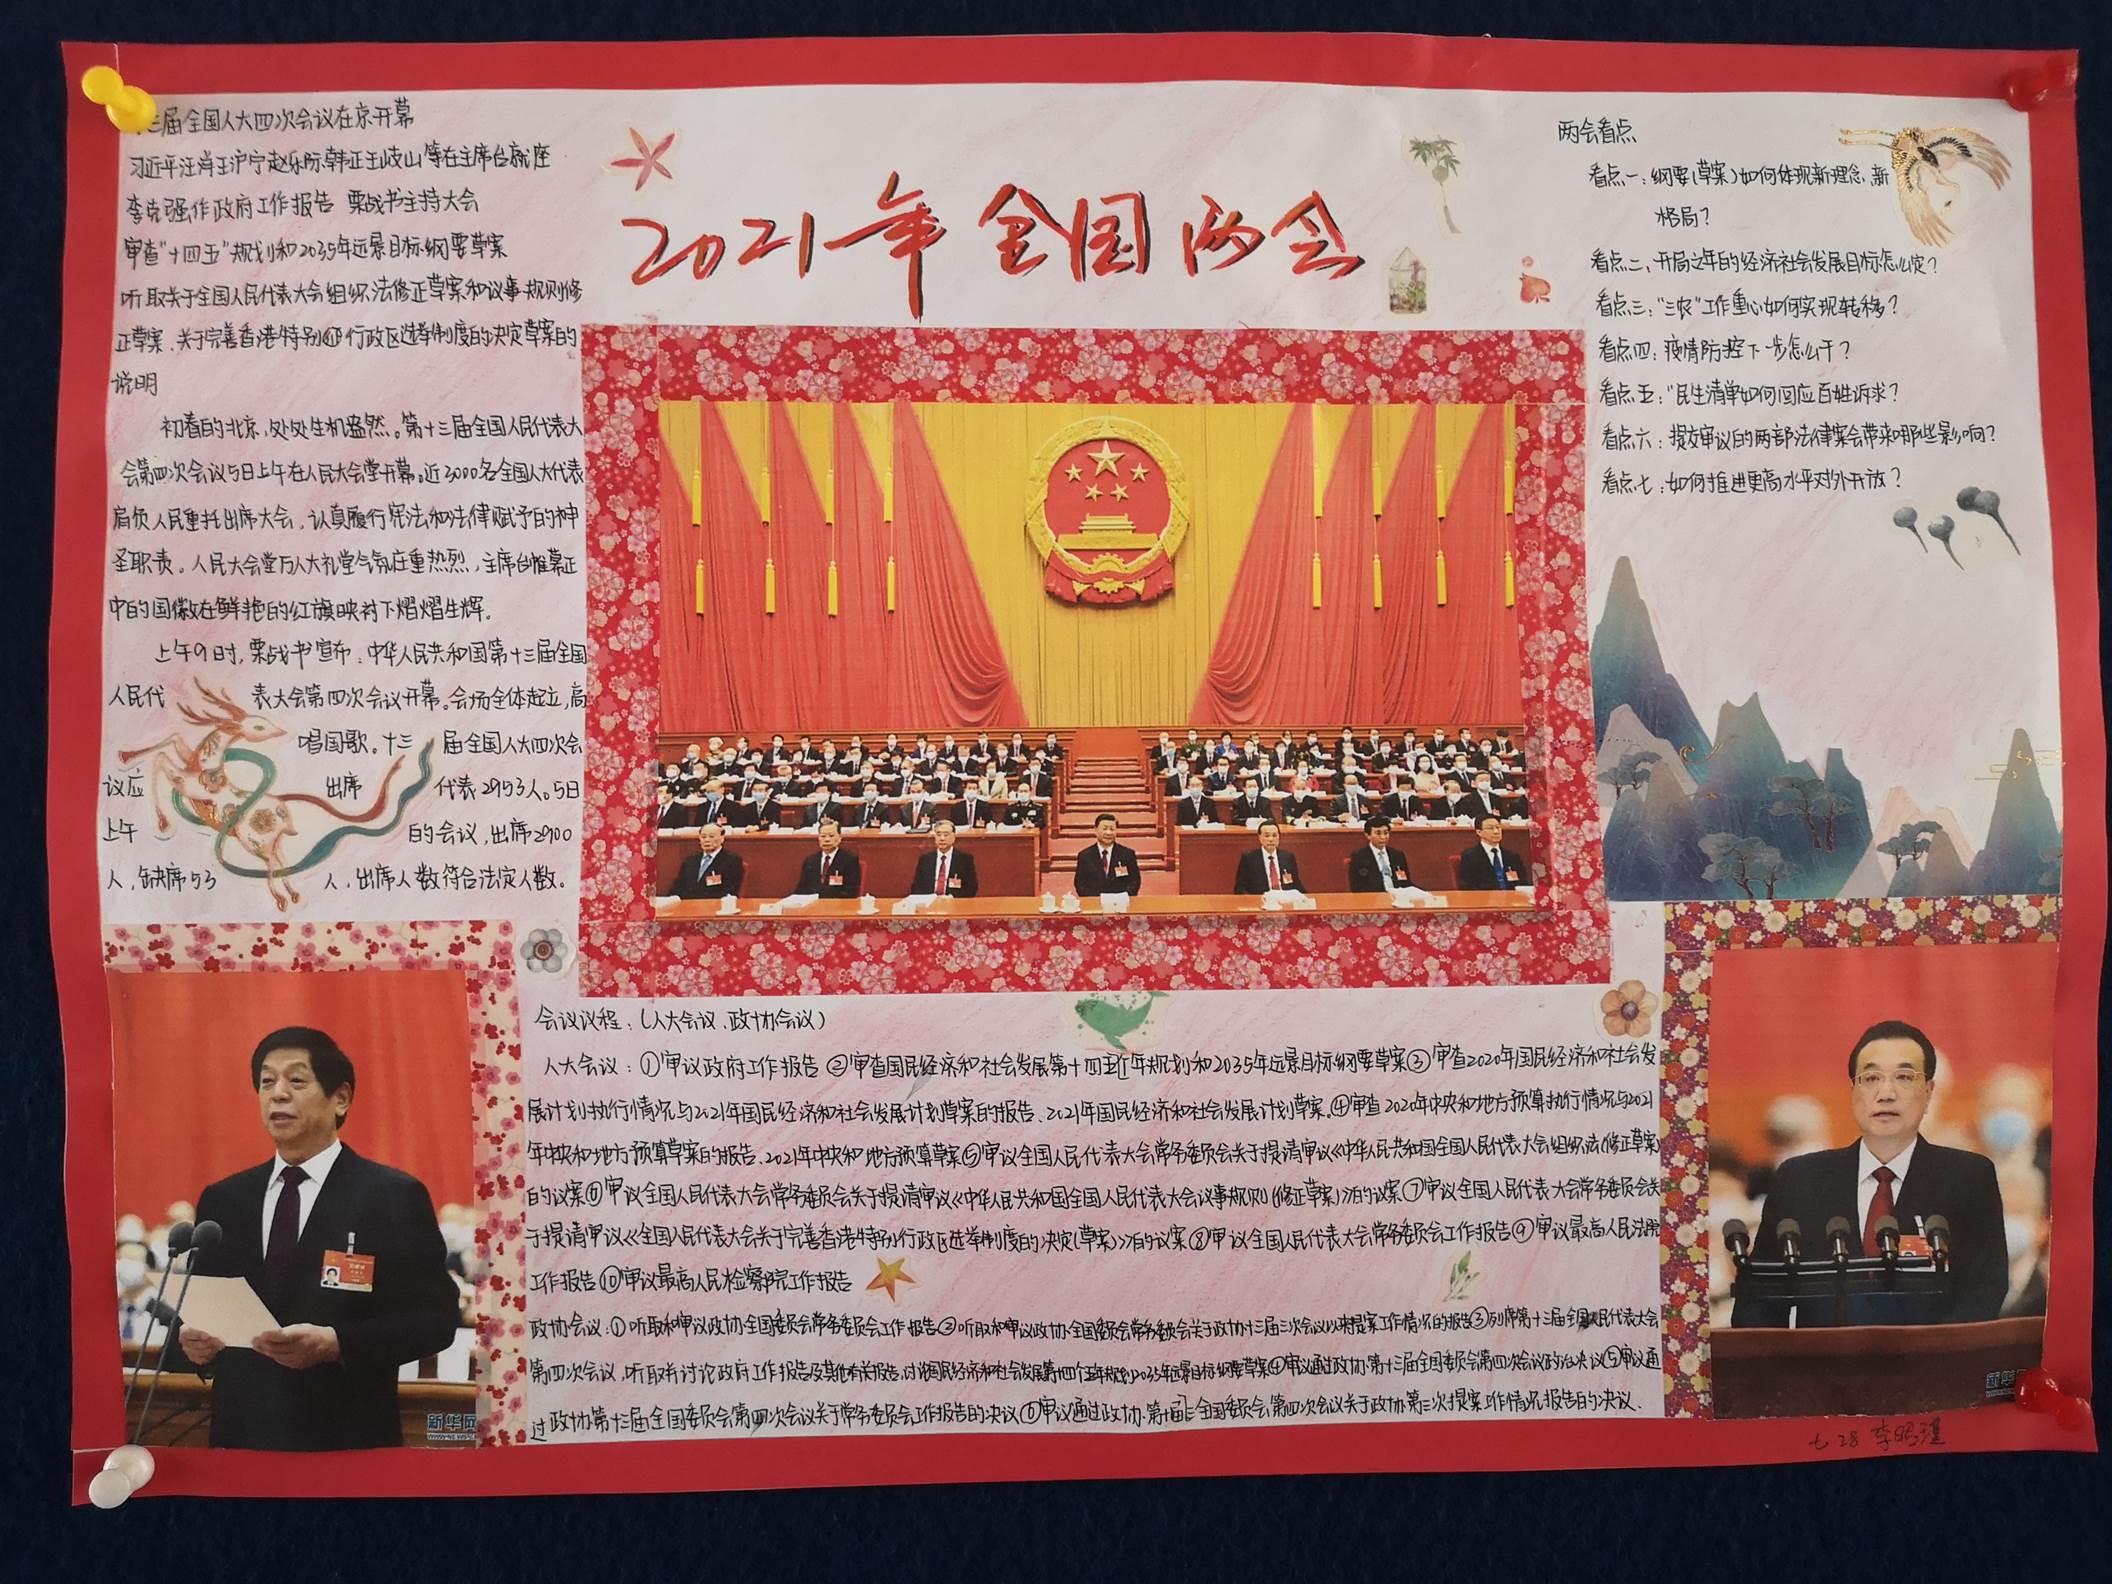 三届全国人大四次会议在京开幕
习近平汪洋王沪宁赵乐际韩正王岐山等在主席台就座
李克强作政府工作报告 栗战书主持大会
审查"十四五"规划和2035年远景目标纲要草案
听取关于全国人民代表大会组织法修正草案和议事规则修
正草案、关于完善香港特别行政区选举制度的决定草案的
说明
初春的北京,处处生机盎然。第十三届全国人民代表大
会第四次会议5日上午在人民大会堂开幕。近3000名全国人大代表
肩负人民重托出席大会,认真履行宪法和法律赋予的神
圣职责。人民大会堂万人大礼堂气氛庄重热烈,主席台帷幕正
中的国徽在鲜艳的红旗映衬下熠熠生辉。
上午9时,栗战书宣布:中华人民共和国第十三届全国
人民代 表大会第四次会议开幕。会场全体起立,高
唱国歌。十三 届全国人大四次会
议应 出席 代表2953人。5日
上午 的会议,出席2900
人,缺席53 人,出席人数符合法定人数。
2021年全国两会
两会看点
看点一:纲要(草案)如何体现新理念、新
格局?
看点二:开局之年的经济社会发展目标怎么定?
看点三:"三农"工作重心如何实现转移?
看点四:疫情防控下一步怎么干?
看点五:"民生清单如何回应百姓诉求?
看点六:提交审议的两部法律案会带来哪些影响?
看点七:如何推进更高水平对外开放?
会议议程:(人大会议、政协会议)
人大会议:①审议政府工作报告②审查国民经济和社会发展第十四五年规划和2035年远景目标纲要草案③审查2020年国民经济和社会发
展计划执行情况与2021年国民经济和社会发展计划草案的报告、2021年国民经济和社会发展计划草案。④审查2020年中央和地方预算执行情况与2021
年中央和地方预算草案的报告、2021年中央和地方预算草案⑤审议全国人民代表大会常务委员会关于提请审议《中华人民共和国全国人民代表大会组织法(修正草案)
的议案⑥审议全国人民代表大会常务委员会关于提请审议《中华人民共和国全国人民代表大会议事规则(修正草案)》的议案⑦审议全国人民代表大会常务委员会关
于提请审议《全国人民代表大会关于完善香港特别行政区选举制度的决定(草案)》的议案⑧审议全国人民代表大会常务委员会工作报告⑨审议最高人民法院
工作报告⑩审议最高人民检察院工作报告
政协会议:①听取和审议政协全国委员会常务委员会工作报告②听取和审议政协全国委员会常务委员会关于政协十三届三次会议以来提案工作情况的报告③列席第十三届全国人民代表大会
第四次会议,听取并讨论政府工作报告及其他有关报告,讨论国民经济和社会发展第十四个五年规划2035年远景目标纲要草案④审议通过政协第十三届全国委员会第四次会议政治决议⑤审议通
过政协第十三届全国委员会第四次会议关于常务委员会工作报告的决议⑥审议通过政协第十三全国委员会第四次会议关于政协第三次提案工作情况报告的决议.
新华网
新华
七28 李昭瑾